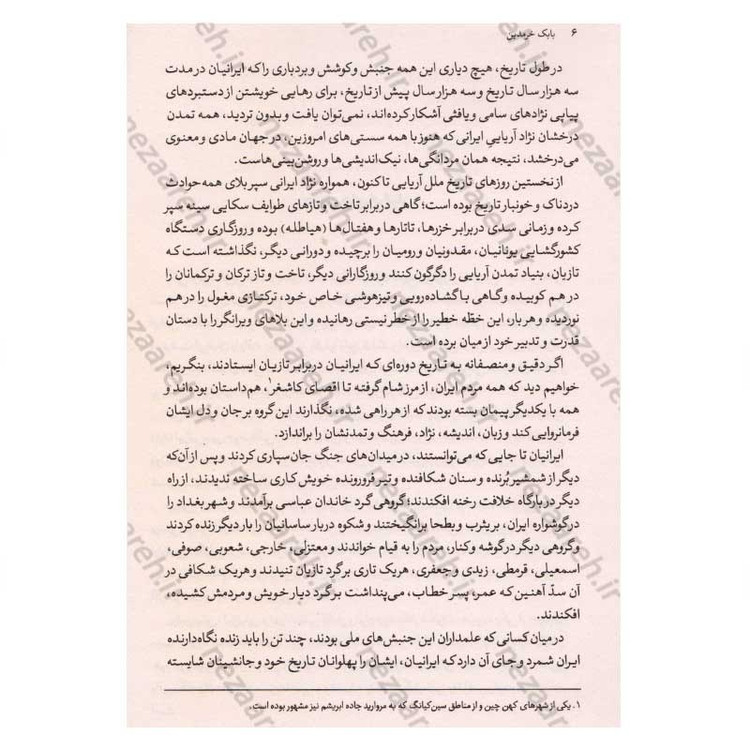 ۶ بابک خرمدین
در طول تاریخ، هیچ دیاری این همه جنبش و کوشش و بردباری را که ایرانیان در مدت
سه هزار سال تاریخ و سه هزار سال پیش از تاریخ، برای رهایی خویشتن از دستبردهای
پیاپی نژادهای سامی و یافثی آشکار کرده‌اند، نمی‌توان یافت و بدون تردید، همه تمدن
درخشان نژاد آریایی ایرانی که هنوز با همه سستی‌های امروزین، در جهان مادی و معنوی
می‌درخشد، نتیجه همان مردانگی‌ها، نیک‌اندیشی‌ها و روشن‌بینی‌هاست.
از نخستین روزهای تاریخ ملل آریایی تاکنون، همواره نژاد ایرانی سپر بلای همه حوادث
دردناک و خونبار تاریخ بوده است؛ گاهی در برابر تاخت و تازهای طوایف سکایی سینه سپر
کرده و زمانی سدی در برابر خزرها، تاتارها و هفتال‌ها (هیاطله) بوده و روزگاری دستگاه
کشورگشایی یونانیان، مقدونیان و رومیان را برچیده و دورانی دیگر، نگذاشته است که
تازیان، بنیاد تمدن آریایی را دگرگون کنند و روزگارانی دیگر، تاخت و تاز ترکان و ترکمانان را
در هم کوبیده و گاهی با گشاده‌رویی و تیزهوشی خاص خود، ترکتازی مغول را در هم
نوردیده و هر بار، این خطه خطیر را از خطر نیستی رهانیده و این بلاهای ویرانگر را با دستان
قدرت و تدبیر خود از میان برده است.
اگر دقیق و منصفانه به تاریخ دوره‌ای که ایرانیان در برابر تازیان ایستادند، بنگریم،
خواهیم دید که همه مردم ایران، از مرز شام گرفته تا اقصای کاشغر۱، هم‌داستان بوده‌اند و
همه با یکدیگر پیمان بسته بودند که از هر راهی شده، نگذارند این گروه بر جان و دل ایشان
فرمانروایی کند و زبان، اندیشه، نژاد، فرهنگ و تمدنشان را براندازد.
ایرانیان تا جایی که می‌توانستند، در میدان‌های جنگ جان‌سپاری کردند و پس از آن‌که
دیگر از شمشیر بُرنده و سنان شکافنده و تیر فرورونده خویش کاری ساخته ندیدند، از راه
دیگر در بارگاه خلافت رخنه افکندند؛ گروهی گرد خاندان عباسی برآمدند و شهر بغداد را
در گوشواره ایران، بر یثرب و بطحا برانگیختند و شکوه دربار ساسانیان را بار دیگر زنده کردند
و گروهی دیگر در گوشه و کنار، مردم را به قیام خواندند و معتزلی، خارجی، شعوبی، صوفی،
اسمعیلی، قرمطی، زیدی و جعفری، هر یک تاری بر گرد تازیان تنیدند و هر یک شکافی در
آن سدّ آهنین که عمر، پسر خطاب، می‌پنداشت بر گرد دیار خویش و مردمش کشیده،
افکندند.
در میان کسانی که علمداران این جنبش‌های ملی بودند، چند تن را باید زنده نگاه‌دارنده
ایران شمرد و جای آن دارد که ایرانیان، ایشان را پهلوانان تاریخ خود و جانشینان شایسته
۱. یکی از شهرهای کهن چین و از مناطق سین‌کیانگ که به مروارید جاده ابریشم نیز مشهور بوده است.
nezaareh.ir